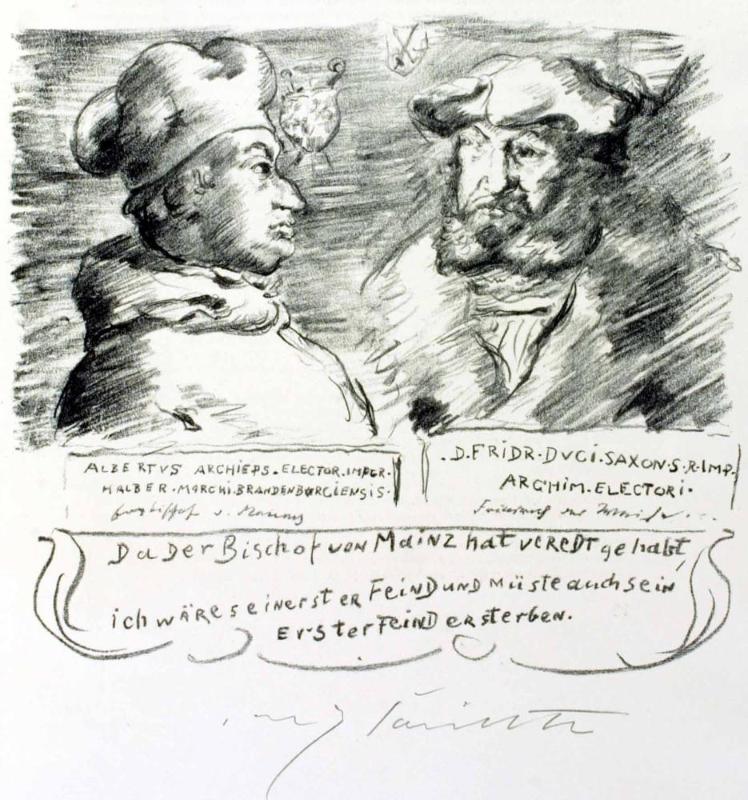 ALBERTVS ARCHIEPS. ELECTOR. IMPER.
HALBER. MARCHI. BRANDENBURGIENSIS.
.D. FRIDR. DVCI. SAXON. S. R. IMP.
ARCHIM. ELECTORI.
Da Der Bischof von Mainz hat veredt gehabt,
ich wäre sein erster Feind und müste auch sein
Erster Feind ersterben.